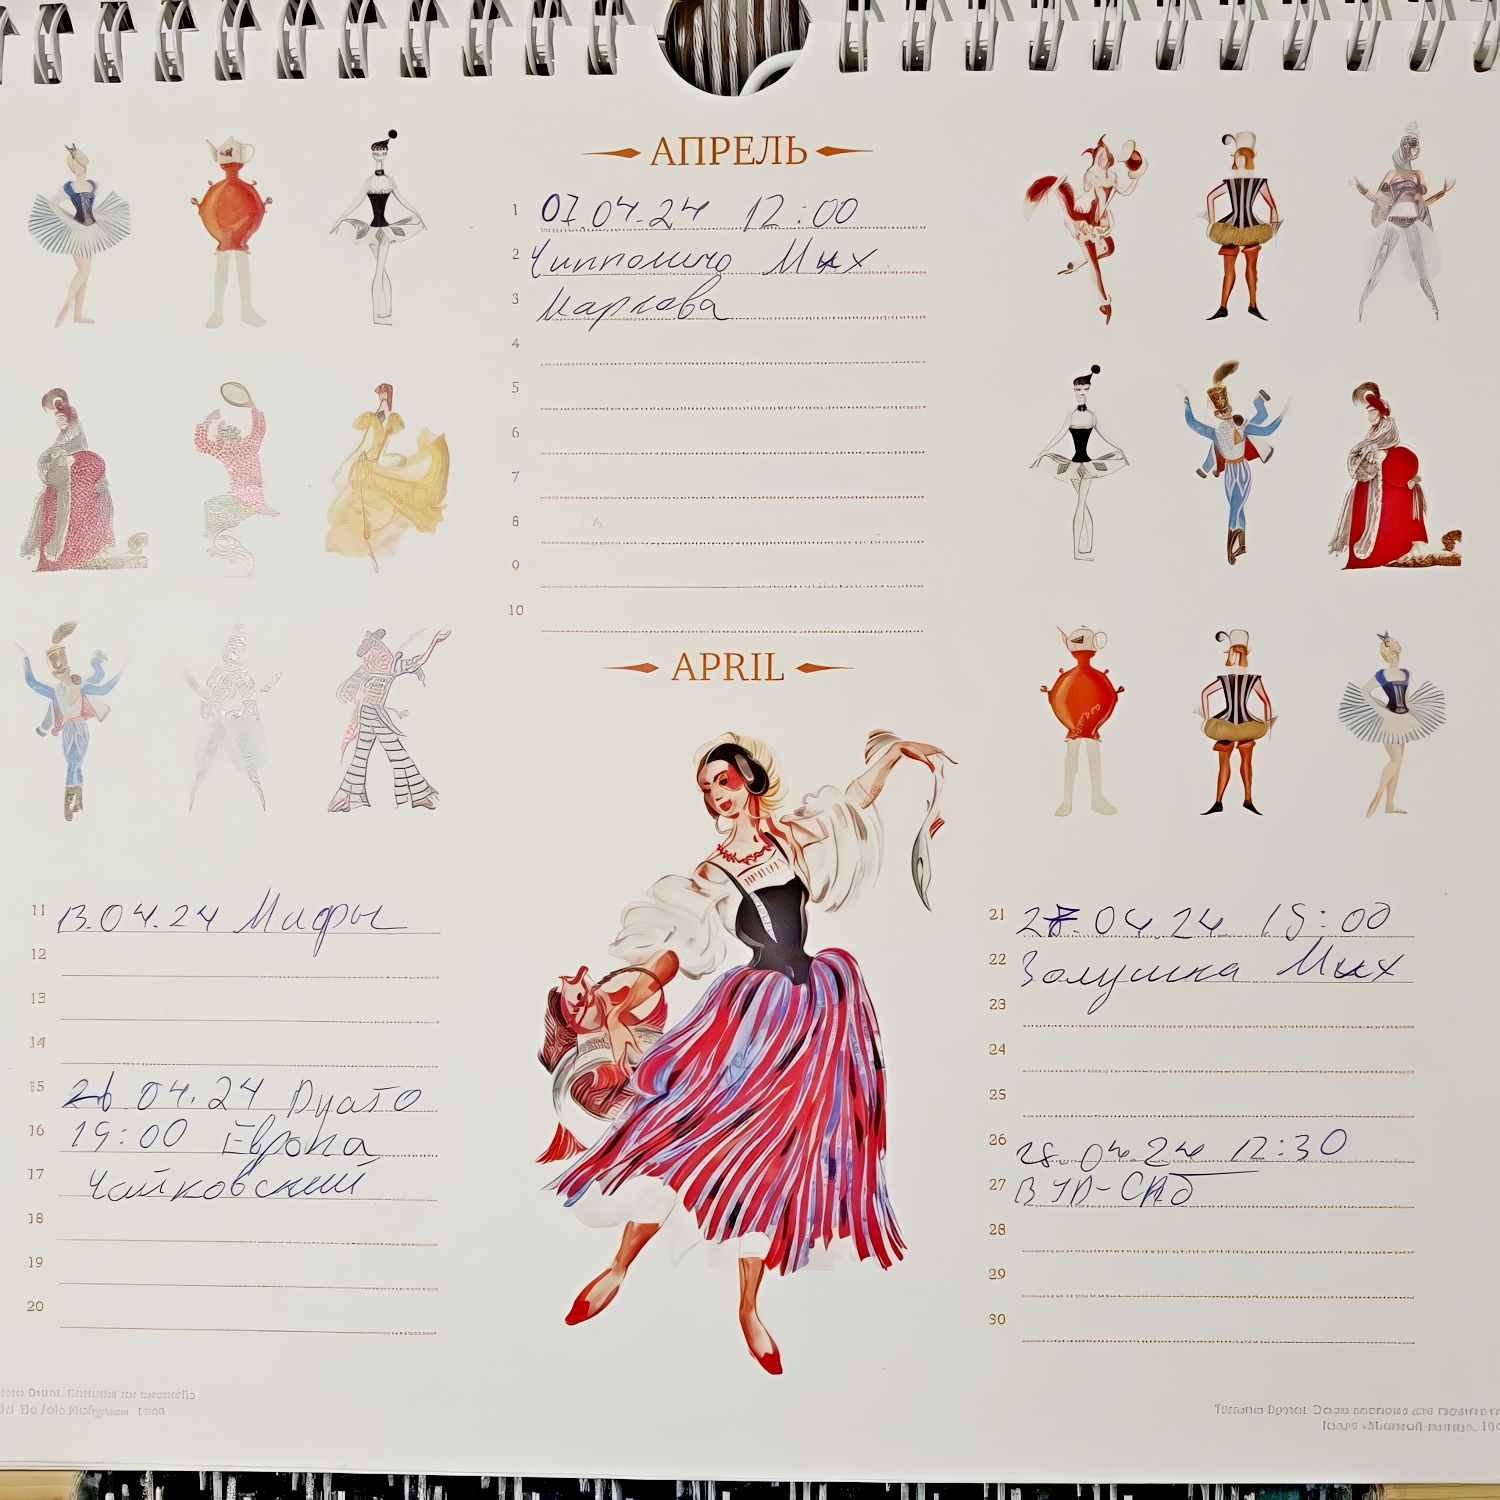 АПРЕЛЬ
1 07.04.24 12:00
2 Чипполино Мих
3 Маркова
4
5
6
7
8
9
10
APRIL
11 13.04.24 Мифы
12
13
14
15 26.04.24 Дуато
16 19:00 Европа
17 Чайковский
18
19
20
21 27.04.24 19:00
22 Золушка Мих
23
24
25
26 28.04.24 12:30
27
28
29
30